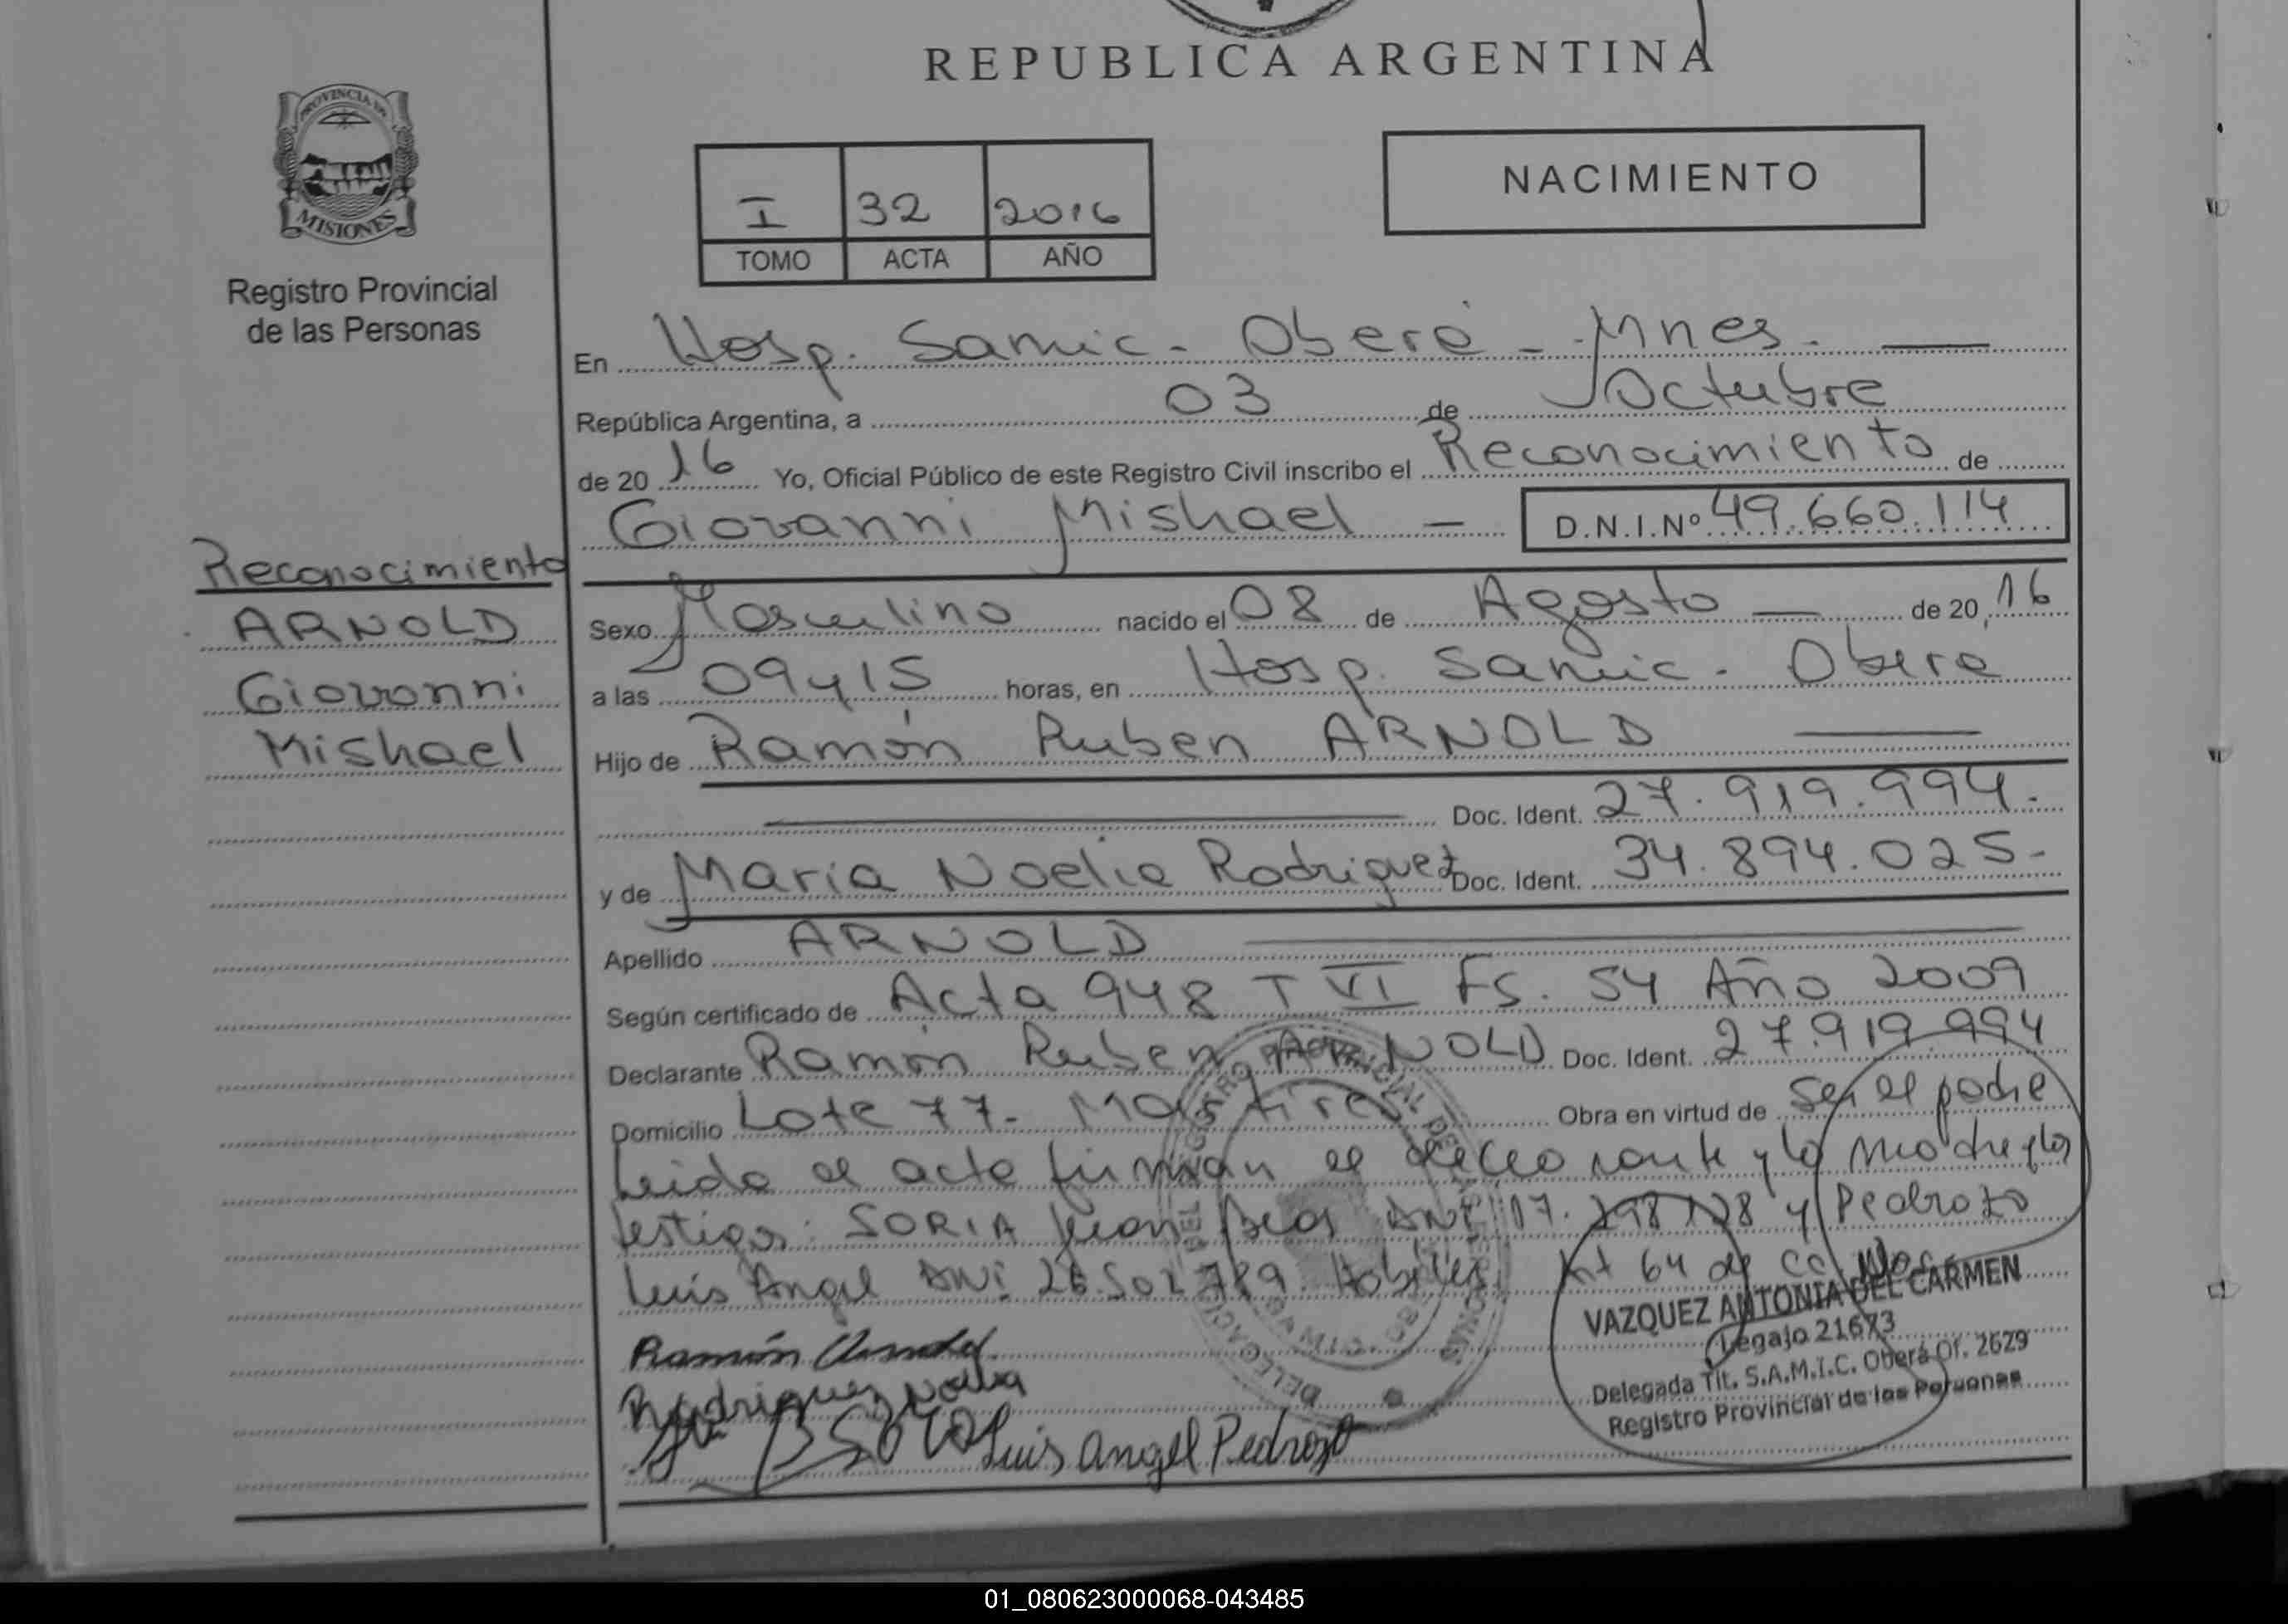 REPUBLICA ARGENTINA
PROVINCIA DE
MISIONES
Registro Provincial
de las Personas
I 32 2016
TOMO ACTA AÑO
NACIMIENTO
En Hosp. Samic - Oberá - Mnes.
República Argentina, a 03 de Octubre
de 20 16 Yo, Oficial Público de este Registro Civil inscribo el Reconocimiento de
Giovanni Mishael D.N.I.Nº 49.660.114
Reconocimiento
ARNOLD
Giovanni
Mishael
Sexo Masculino nacido el 08 de Agosto de 20 16
a las 09 y 15 horas, en Hosp. Samic - Obera
Hijo de Ramón Ruben ARNOLD
Doc. Ident. 27.919.994.
y de Maria Noelia Rodriguez Doc. Ident. 34.894.025-
Apellido ARNOLD
Según certificado de Acta 948 T VI Fs. 54 Año 2009
Declarante Ramón Ruben ARNOLD Doc. Ident. 27.919.994
Domicilio Lote 77- Martires Obra en virtud de Ser el padre
Leida el acta firman el declarante y la madre y los
testigos: SORIA Juan DNI 17. y Pedrozo
Luis Angel DNI 26.502.789 Art 64 del
VAZQUEZ ANTONIA DEL CARMEN
Legajo 21673
Delegada Tit. S.A.M.I.C. Oberá Of. 2629
Registro Provincial de las Personas
Ramón Arnold
Rodriguez Noelia
Luis Angel Pedrozo
01_080623000068-043485